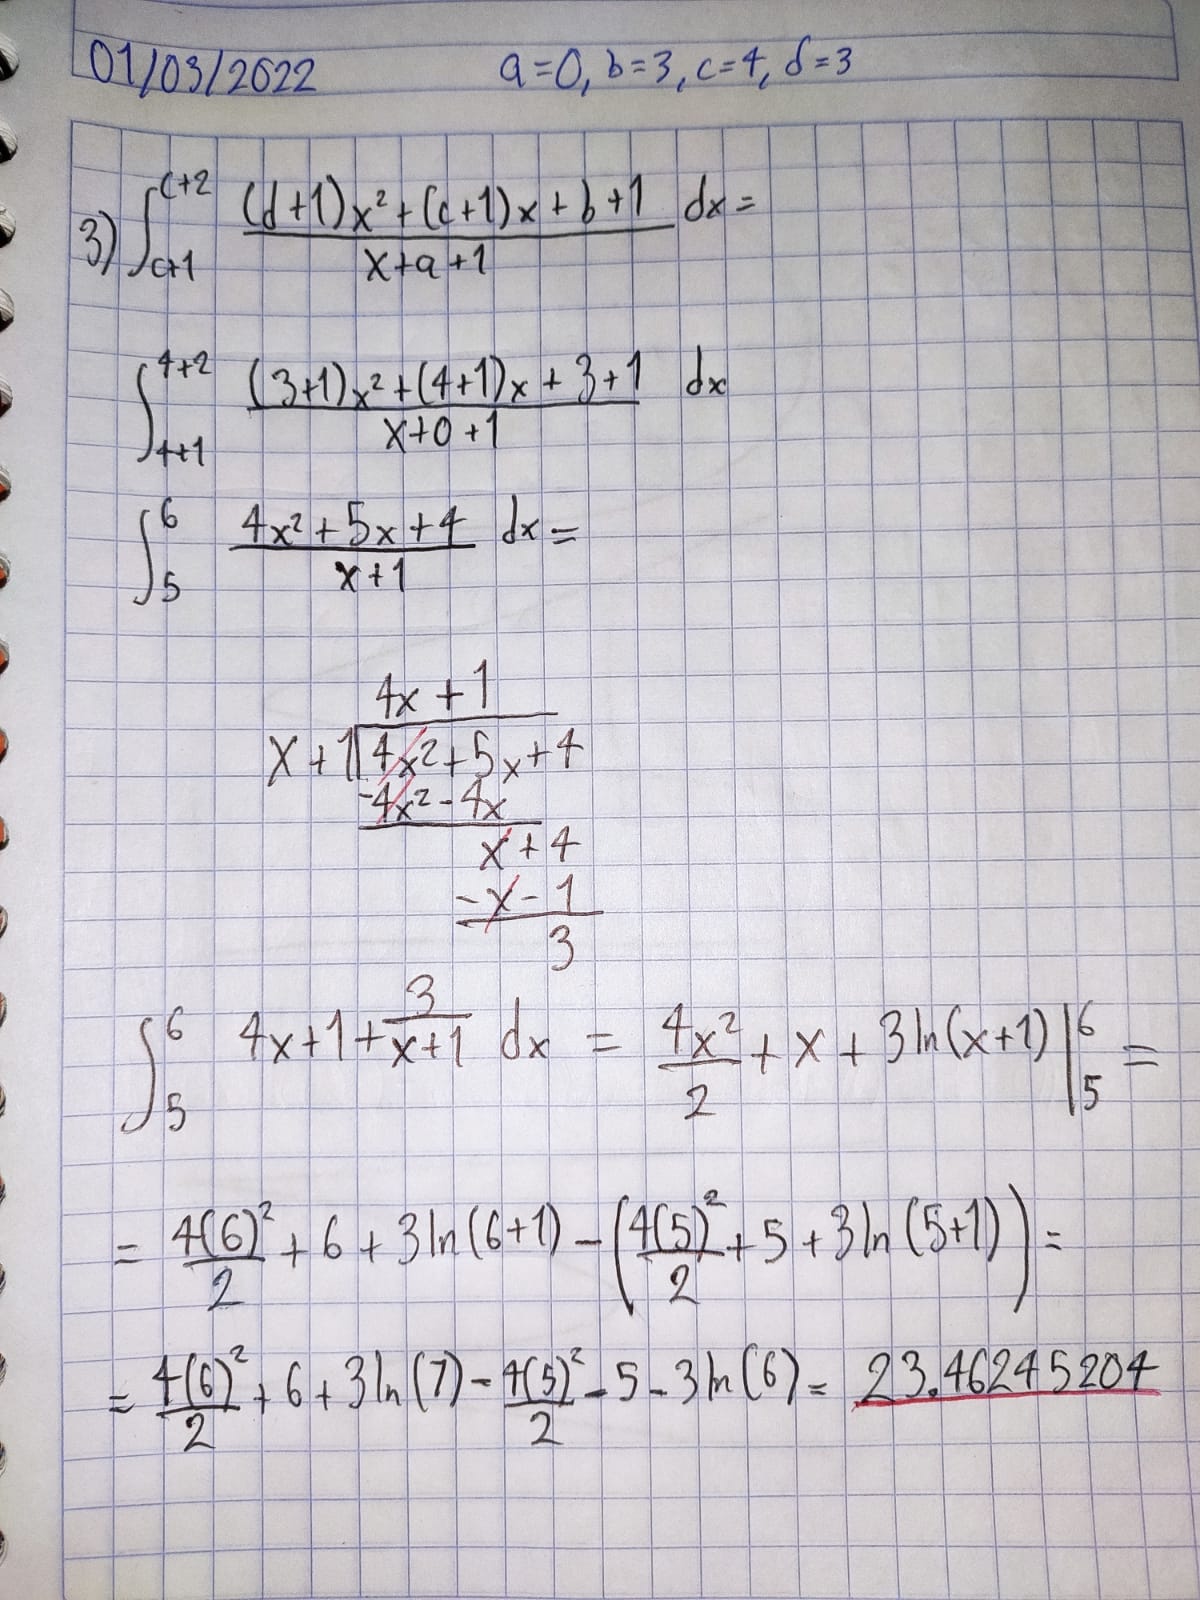 01/03/2022 a=0, b=3, c=4, d=3
3) ∫_{c+1}^{c+2} \frac{(d+1)x²+(c+1)x+b+1}{x+a+1} dx =
∫_{4+1}^{4+2} \frac{(3+1)x²+(4+1)x+3+1}{x+0+1} dx
∫_5^6 \frac{4x²+5x+4}{x+1} dx =
4x+1
x+1 | 4x²+5x+4
-4x²-4x
x+4
-x-1
3
∫_5^6 4x+1+\frac{3}{x+1} dx = \frac{4x²}{2}+x+3ln(x+1)|_5^6 =
= \frac{4(6)²}{2}+6+3ln(6+1)-(\frac{4(5)²}{2}+5+3ln(5+1)) =
= \frac{4(6)²}{2}+6+3ln(7)-\frac{4(5)²}{2}-5-3ln(6) = 23.46245204